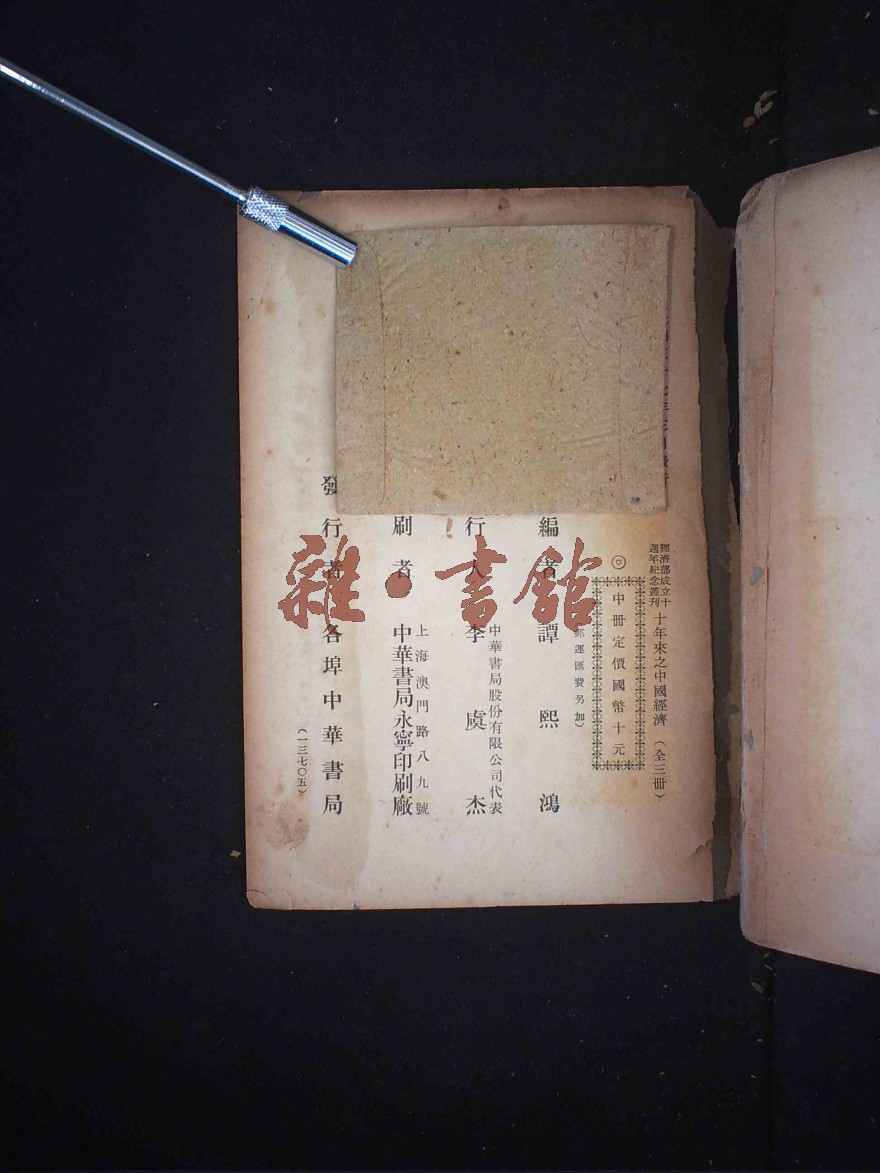 經濟部成立十
週年紀念叢刊
十年來之中國經濟（全三冊）
◎中冊定價國幣十元
郵運匯費另加）
編者 譚熙鴻
行人 李虞杰
中華書局股份有限公司代表
刷者 中華書局永寧印刷廠
上海澳門路八九號
發行者 各埠中華書局
（一三七〇五）
雜·書館